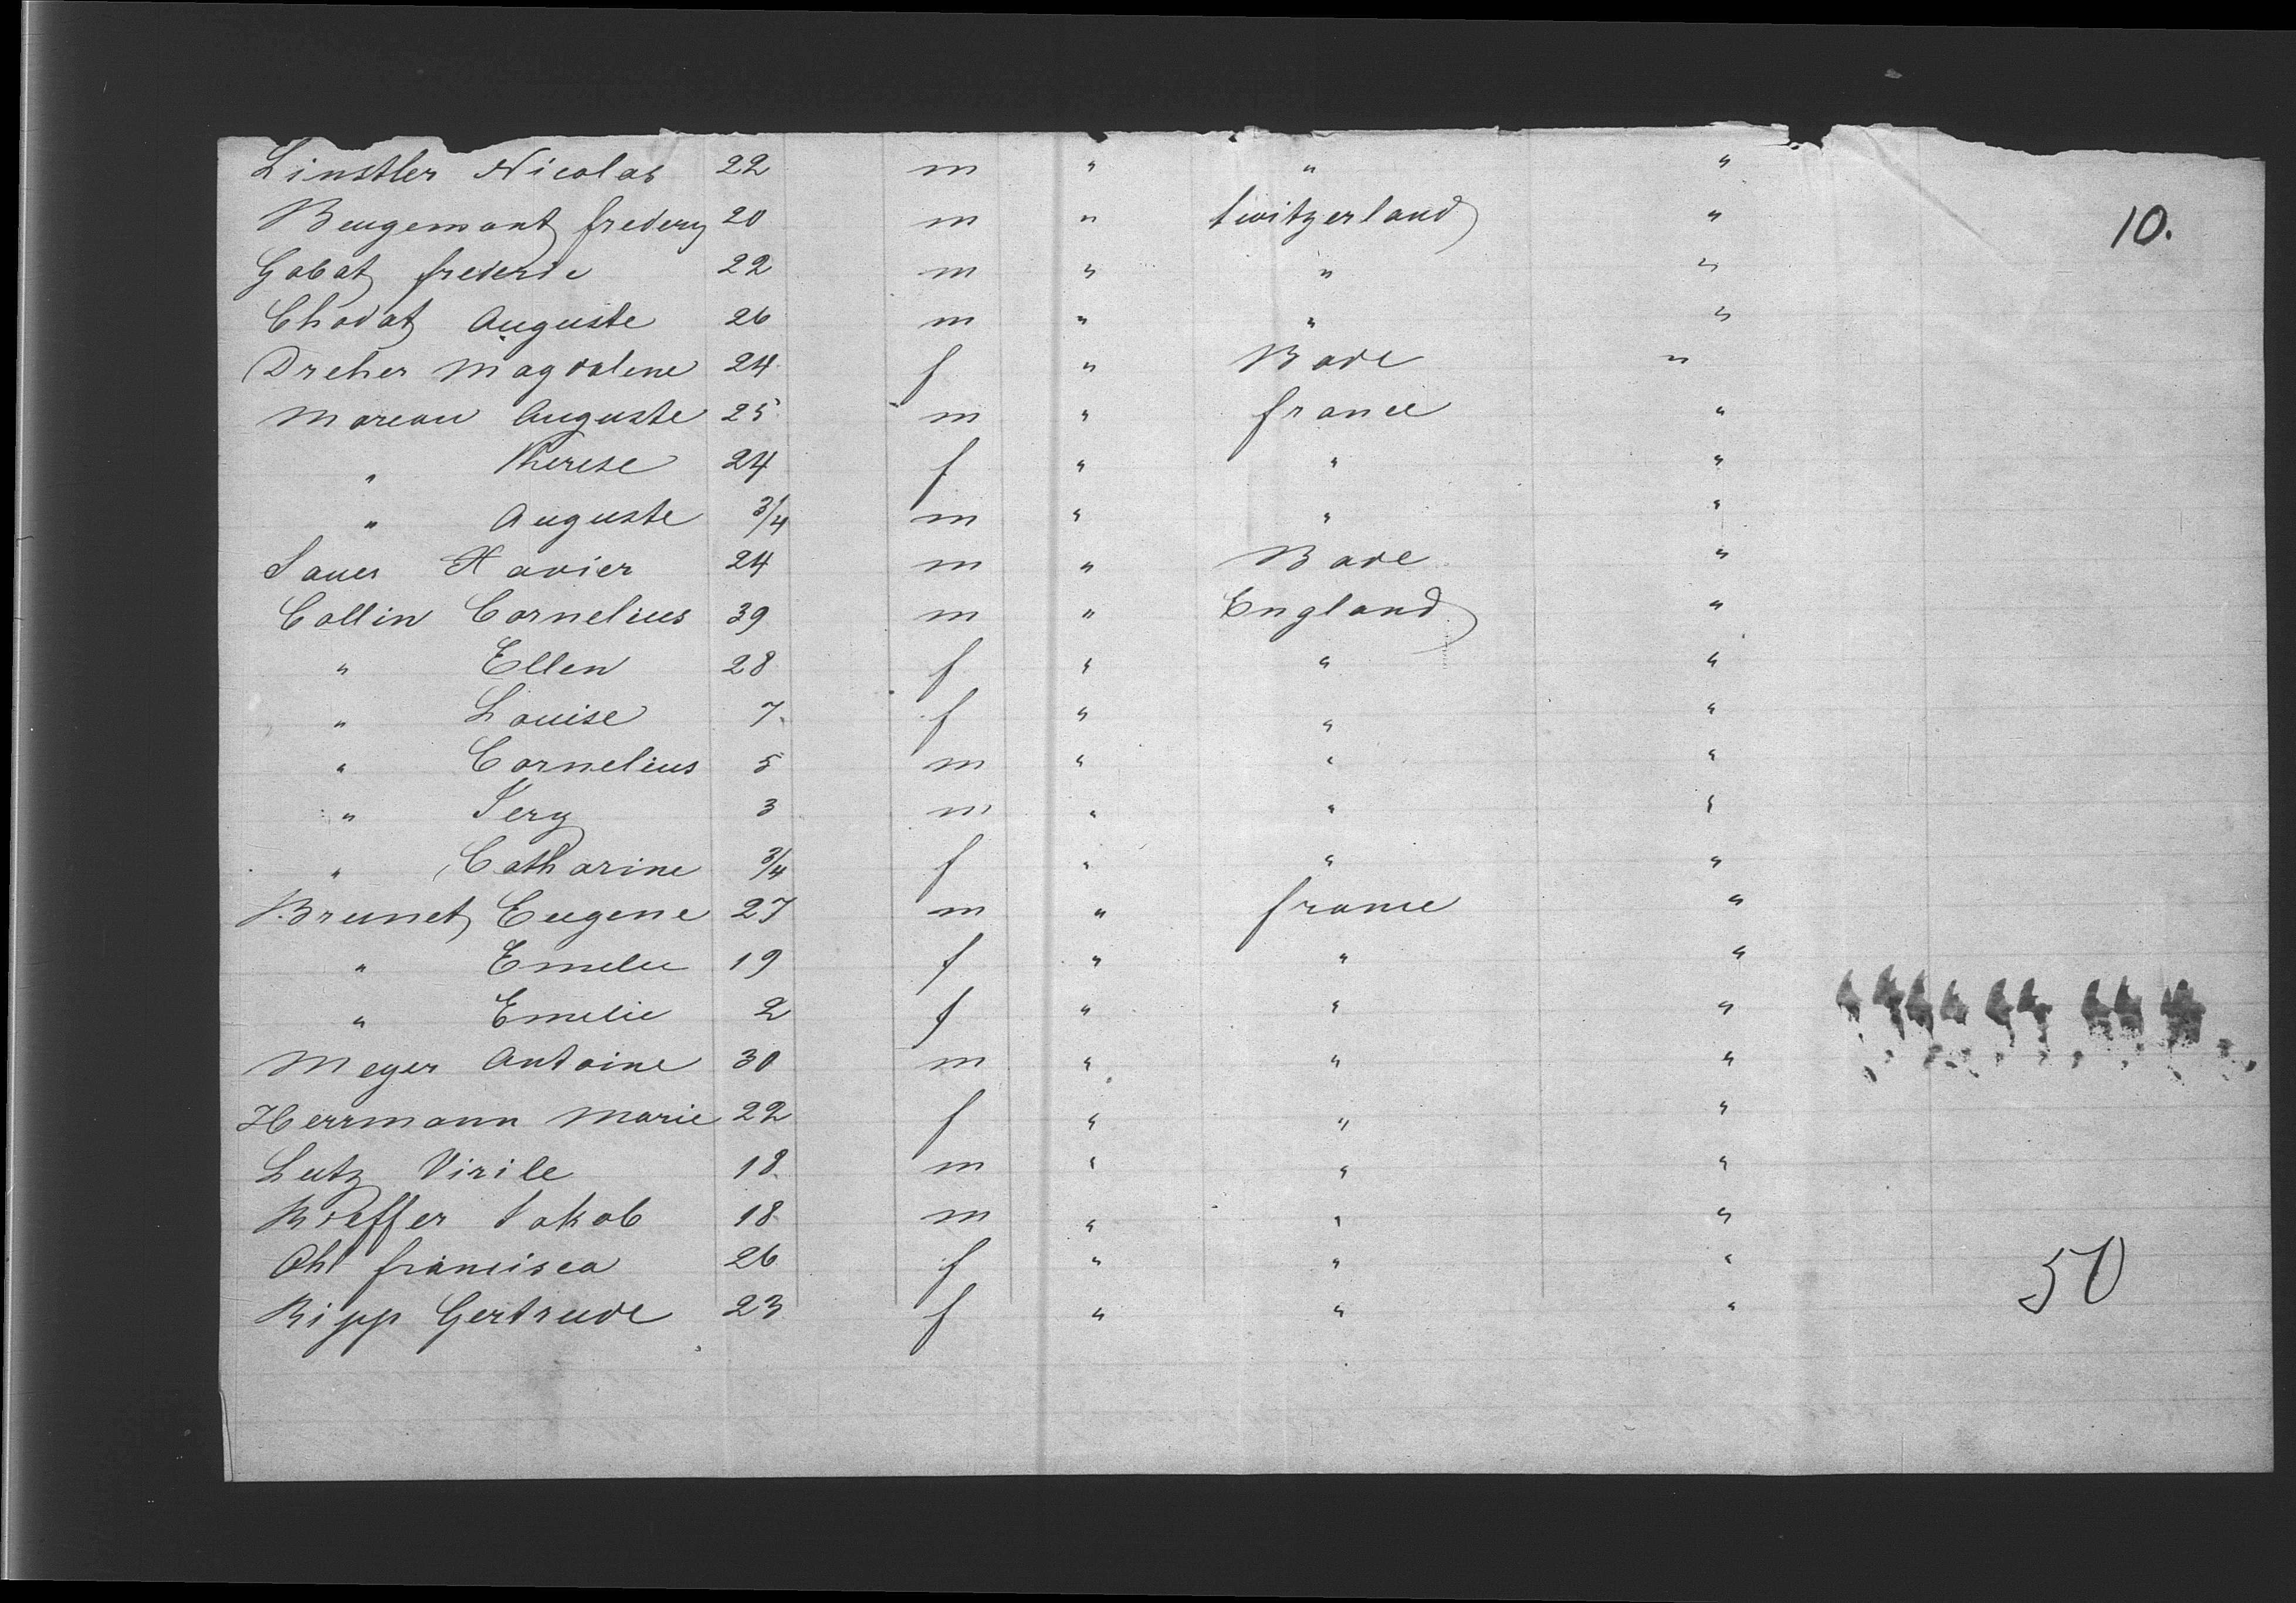 Linstler Nicolas 22 m " " "
Beugemant frederiz 20 m " Switzerland "
10.
Gobat frederic 22 m " " "
Chodat Auguste 26 m " " "
Dreher Magdalene 24 f " Bade "
Moreau Auguste 25 m " france "
" Therese 24 f " " "
" Auguste 3/4 m " " "
Sauer Xavier 24 m " Bade "
Collin Cornelius 39 m " England "
" Ellen 28 f " " "
" Louise 7 f " " "
" Cornelius 5 m " " "
" Jery 3 m " " "
" Catharine 3/4 f " " "
Brunet Eugene 27 m " france "
" Emelie 19 f " " "
" Emelie 2 f " " "
Meyer Antoine 30 m " " "
Herrmann Marie 22 f " " "
Lutz Virile 18 m " " "
Jakob 18 m " " "
Ohl francisca 26 f " " "
50
Ripp Gertrude 23 f " " "